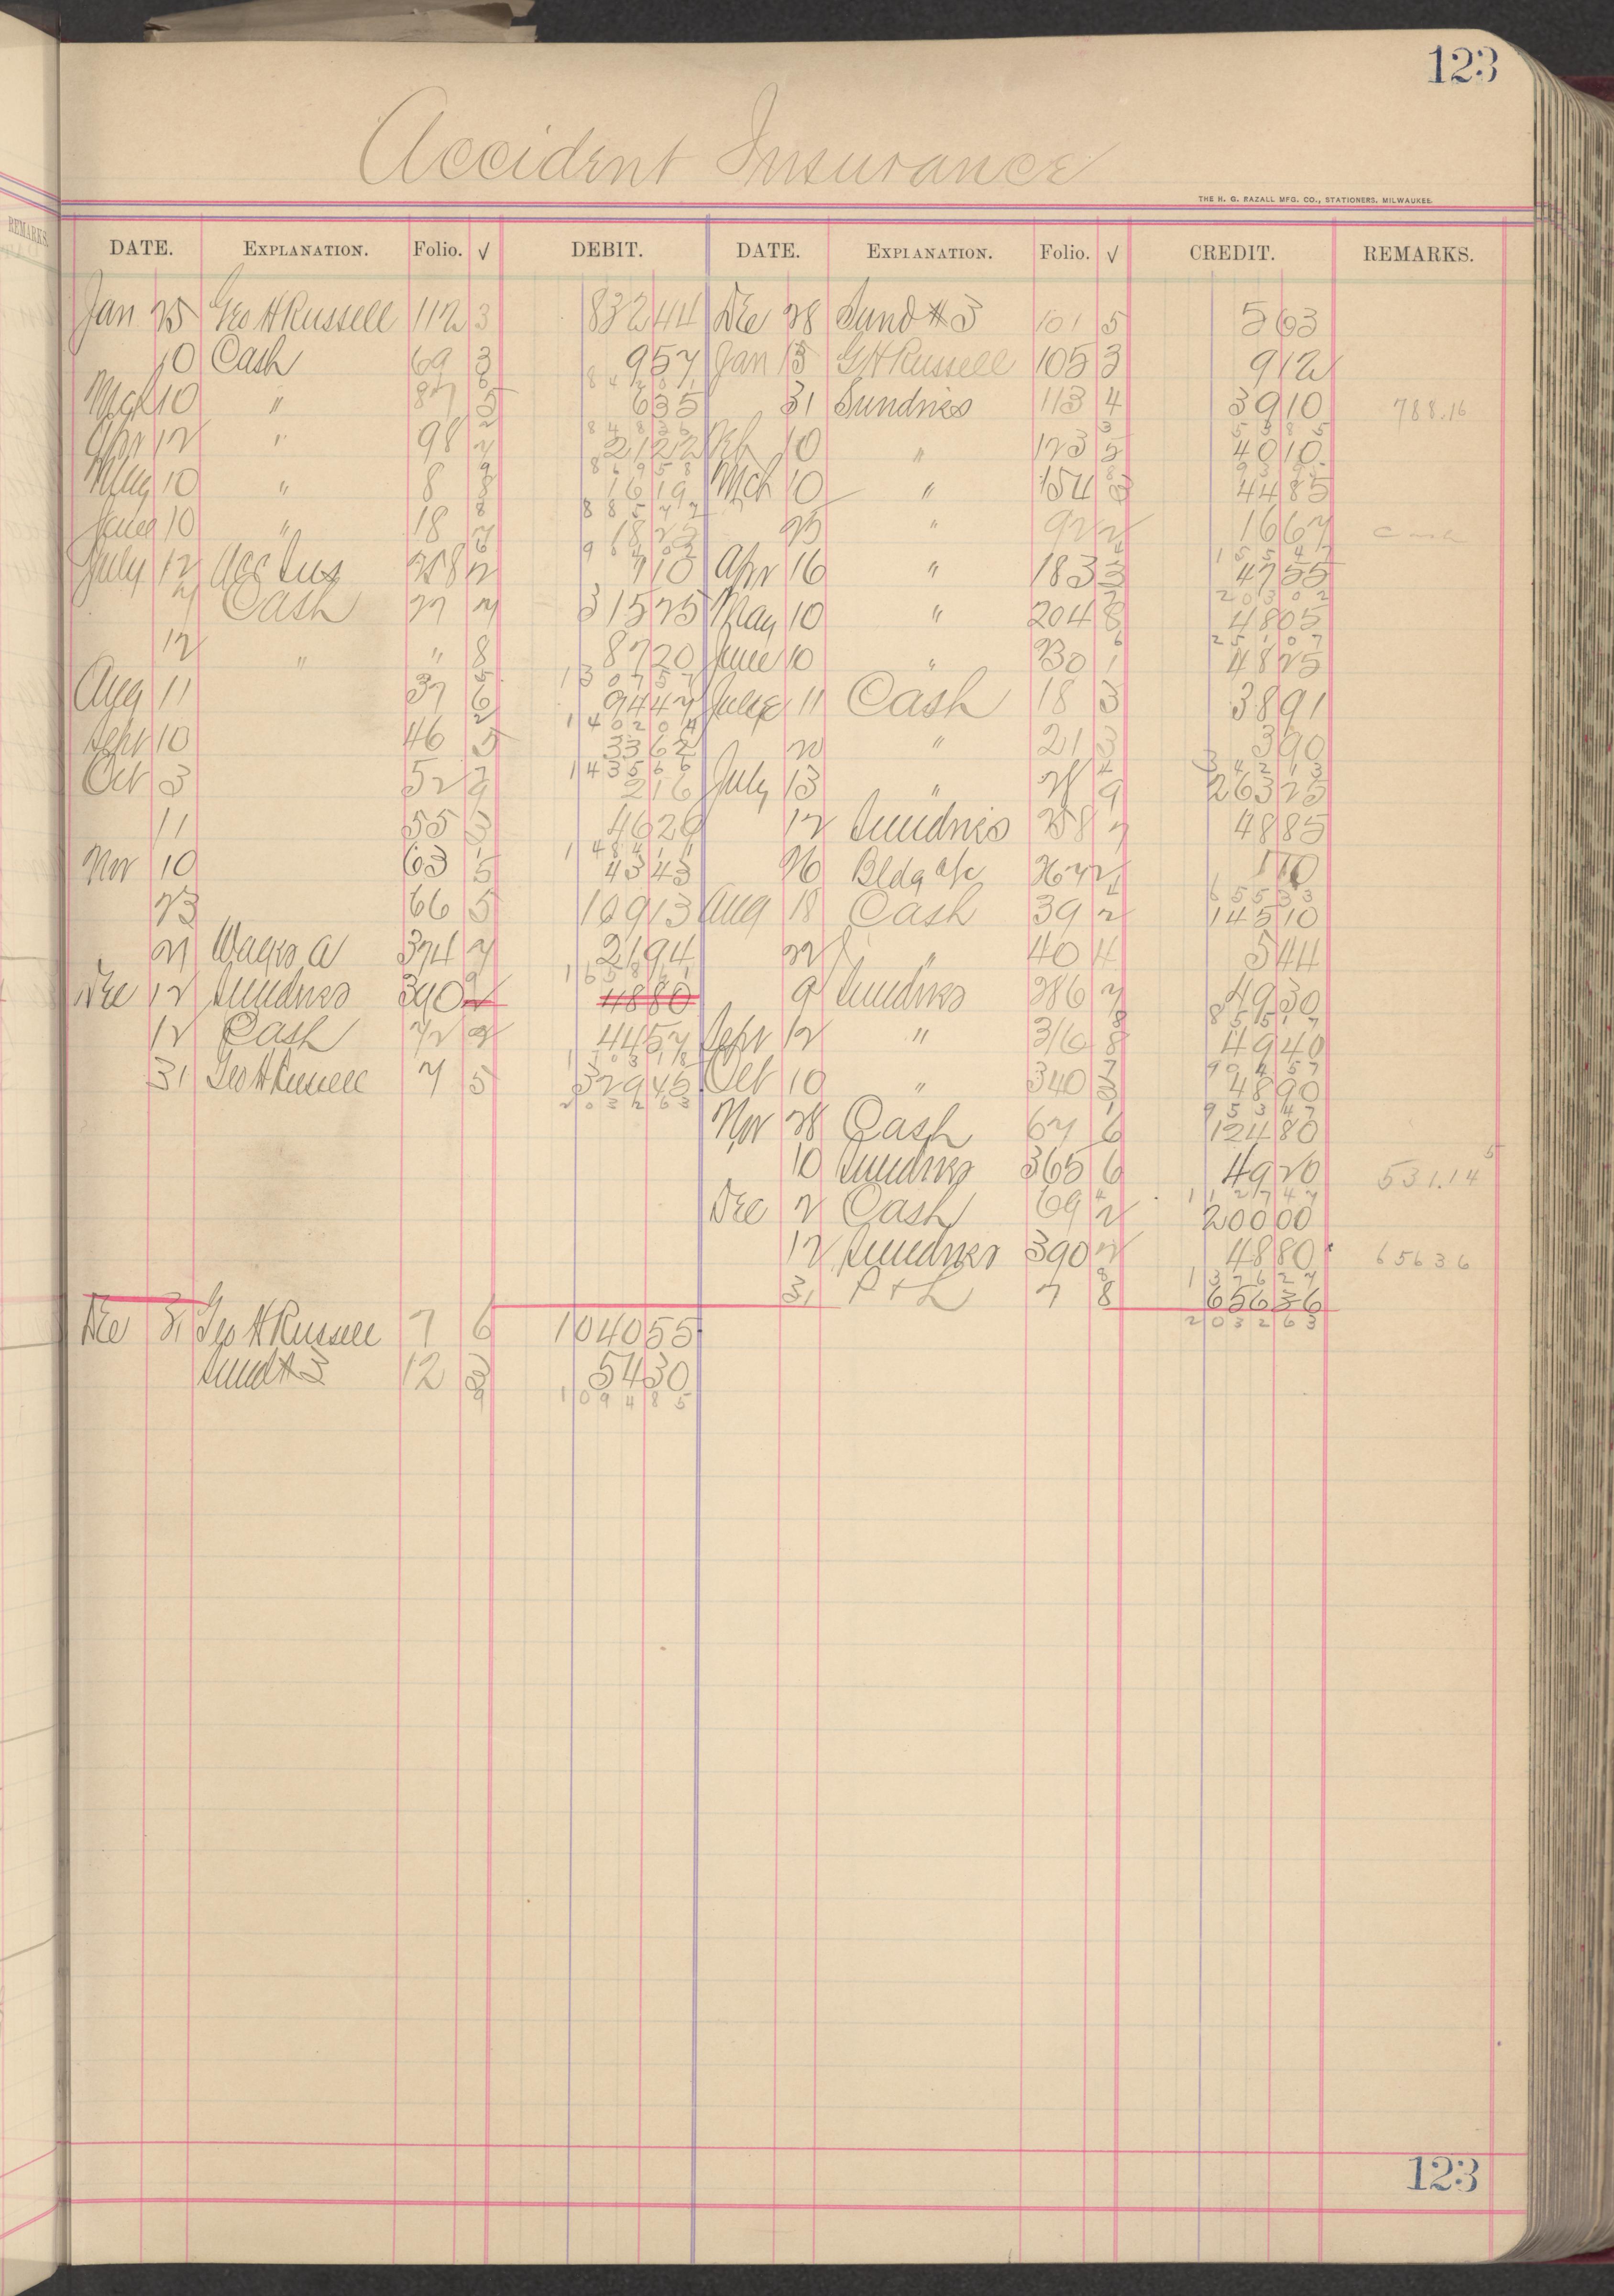 123
Accident Insurance
THE H. G. RAZALL MFG. CO., STATIONERS, MILWAUKEE.
REMARKS.
DATE. EXPLANATION. Folio. √ DEBIT. DATE. EXPLANATION. Folio. √ CREDIT. REMARKS.
Jan 25 Geo H Russell 112 3 832 44 Dec 28 Sund # 3 101 5 5 63
10 Cash 69 3 9 57 Jan 13 G H Russell 105 3 9 12
8 4 2 0 1
Mch 10 " 87 5 6 35 31 Sundries 113 4 39 10 788.16
8 4 8 3 6 5 3 8 5
Apr 12 " 98 2 21 22 Feb 10 " 123 5 40 10
8 6 9 5 8
May 10 " 8 8 16 19 Mch 10 " 154 3 44 85
8 8 5 7 7
June 10 " 18 18 25 25 " 92 2 16 67
1 5 5 4 7
July 12 Acc Ins 258 2 7 10 Apr 16 " 183 3 47 55
2 0 3 0 2
Cash 27 7 315 25 May 10 " 204 8 48 05
2 5 1 0 7
12 " " 8 87 20 June 10 " 230 1 48 25
1 3 0 7 5 7
Aug 11 37 6 94 47 11 Cash 18 3 38 91
1 4 0 2 0 4
Sept 10 46 5 33 62 20 " 21 3 3 90
1 4 3 5 6 6 3 4 2 1 3
Oct 3 52 2 16 July 13 " 28 9 263 25
11 55 3 46 29 12 Sundries 258 7 48 85
1 4 8 4 1 1
Nov 10 63 5 43 43 26 Bldg a/c 267 2 1 10
6 5 5 3 3
23 66 5 109 13 Aug 18 Cash 39 2 145 10
21 Wages a 374 7 21 94 22 " 40 4 5 44
1 6 5 8 6 1
Dec 12 Sundries 390 2 48 80 9 Sundries 286 7 49 30
8 5 5 1 7
12 Cash 72 2 44 57 Sept 12 " 316 8 49 40
1 7 0 3 1 8 9 0 4 5 7
31 Geo H Russell 7 5 329 45 Oct 10 " 340 3 48 90
2 0 3 2 6 3 9 5 3 4 7
Nov 28 Cash 67 6 124 80
10 Sundries 365 6 49 20 531.14
1 1 2 7 4 7
Dec 2 Cash 69 2 200 00
12 Sundries 390 2 48 80 65636
1 3 7 6 2 7
31 P + L 7 8 656 36
2 0 3 2 6 3
Dec 31 Geo H Russell 7 6 1040 55
Sund # 3 12 3 54 30
1 0 9 4 8 5
123